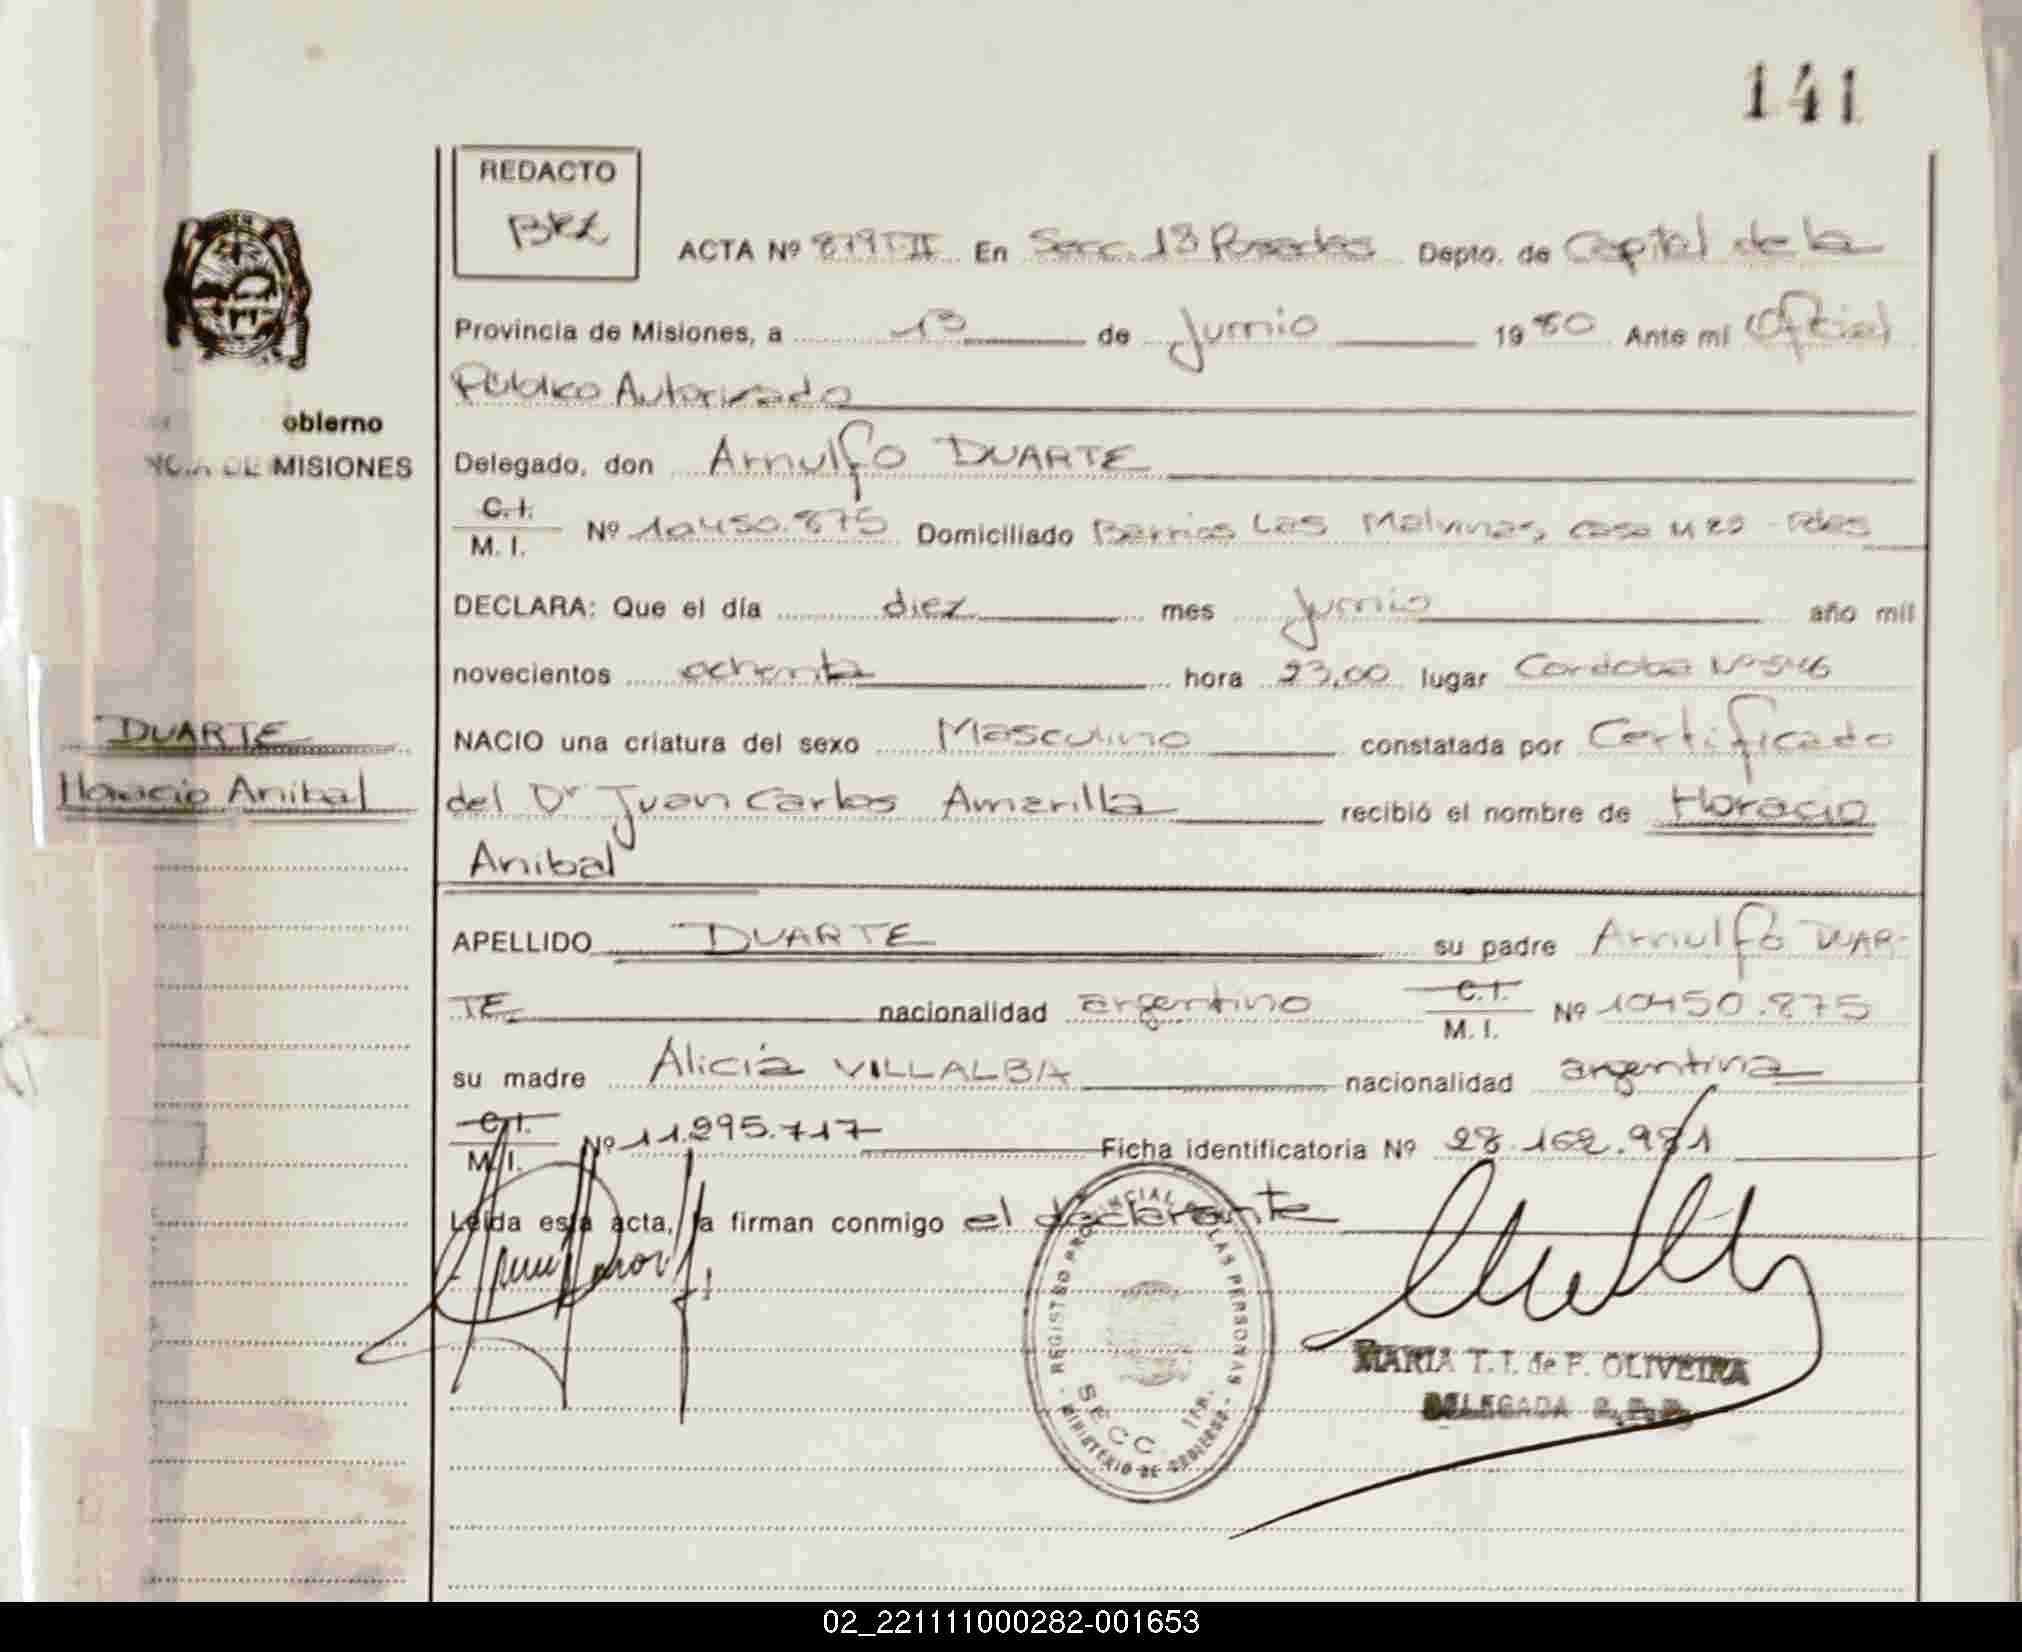 141
REDACTO
BRZ
ACTA Nº 879 T II En Secc. 13 Posadas Depto. de Capital de la
Provincia de Misiones, a 13 de Junio 1980 Ante mi Oficial
Público Autorizado
obierno
MISIONES
Delegado, don Arnulfo DUARTE
C.I.
M. I. Nº 10450.875 Domiciliado Barrios Las Malvinas, casa
DECLARA: Que el día diez mes Junio año mil
novecientos ochenta hora 23,00 lugar Cordoba Nº 546
DUARTE
NACIO una criatura del sexo Masculino constatada por Certificado
Horacio Anibal
del Dr Juan Carlos Amarilla recibió el nombre de Horacio
Anibal
APELLIDO DUARTE su padre Arnulfo DUAR-
TE nacionalidad argentino C.I. M. I. Nº 10450.875
su madre Alicia VILLALBA nacionalidad argentina
C.I.
M. I. Nº 11.295.717 Ficha identificatoria Nº 28.162.981
Leída esta acta, la firman conmigo el declarante
REGISTRO PROVINCIAL DE LAS PERSONAS
SECC. 1RA.
MINISTERIO DE GOBIERNO
MARIA T. I. de F. OLIVEIRA
DELEGADA R.P.P.
02_221111000282-001653